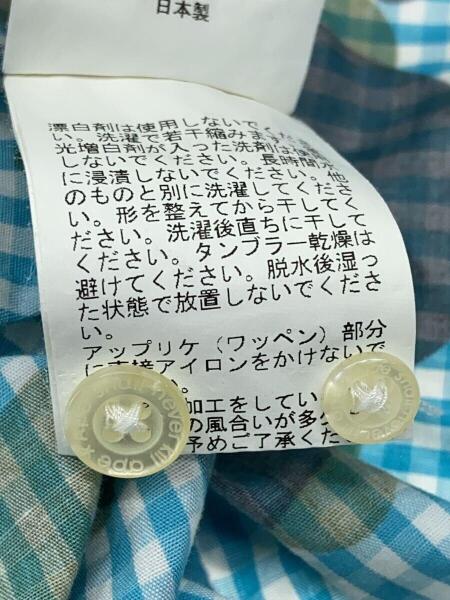 日本製
漂白剤は使用しないでくだ
い。洗濯で若干縮みま
光増白剤が入った洗剤は使
しないでください。長時間水
に浸漬しないでください。他
のものと別に洗濯してくださ
い。形を整えてから干してく
ださい。洗濯後直ちに干して
ください。タンブラー乾燥は
避けてください。脱水後湿っ
た状態で放置しないでくださ
い。
アップリケ（ワッペン）部分
に直接アイロンをかけないで
い。
加工をしてい
の風合いが多
予めご了承くだ
ape shall never kill ape